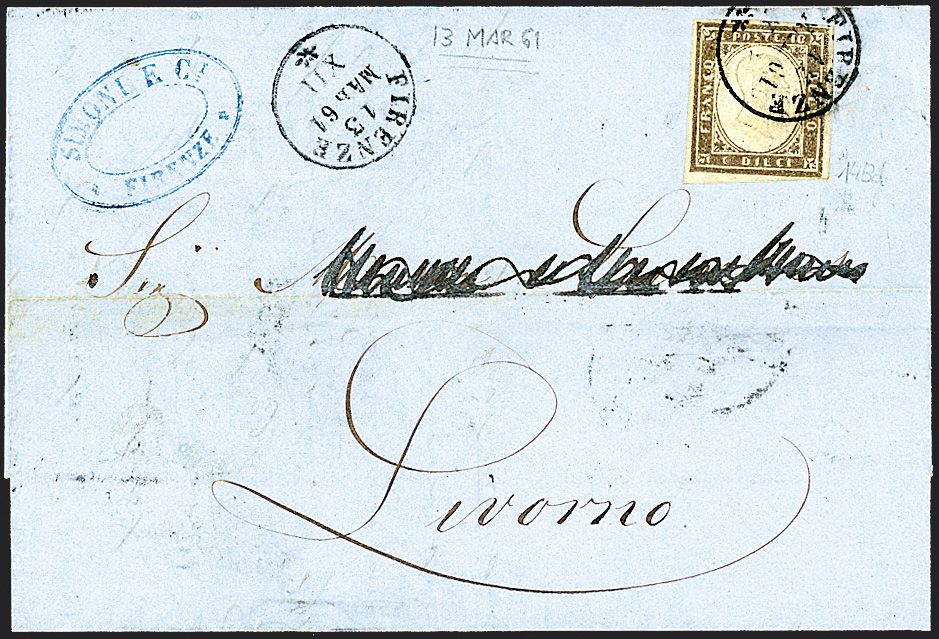 13 MAR 61
SIMONI E C.
* FIRENZE *
FIRENZE
13
MAR 61
XII
*
FIRENZE
FRANCO
POSTE 10
C DIECI
14Bd
4
Sig.
Livorno